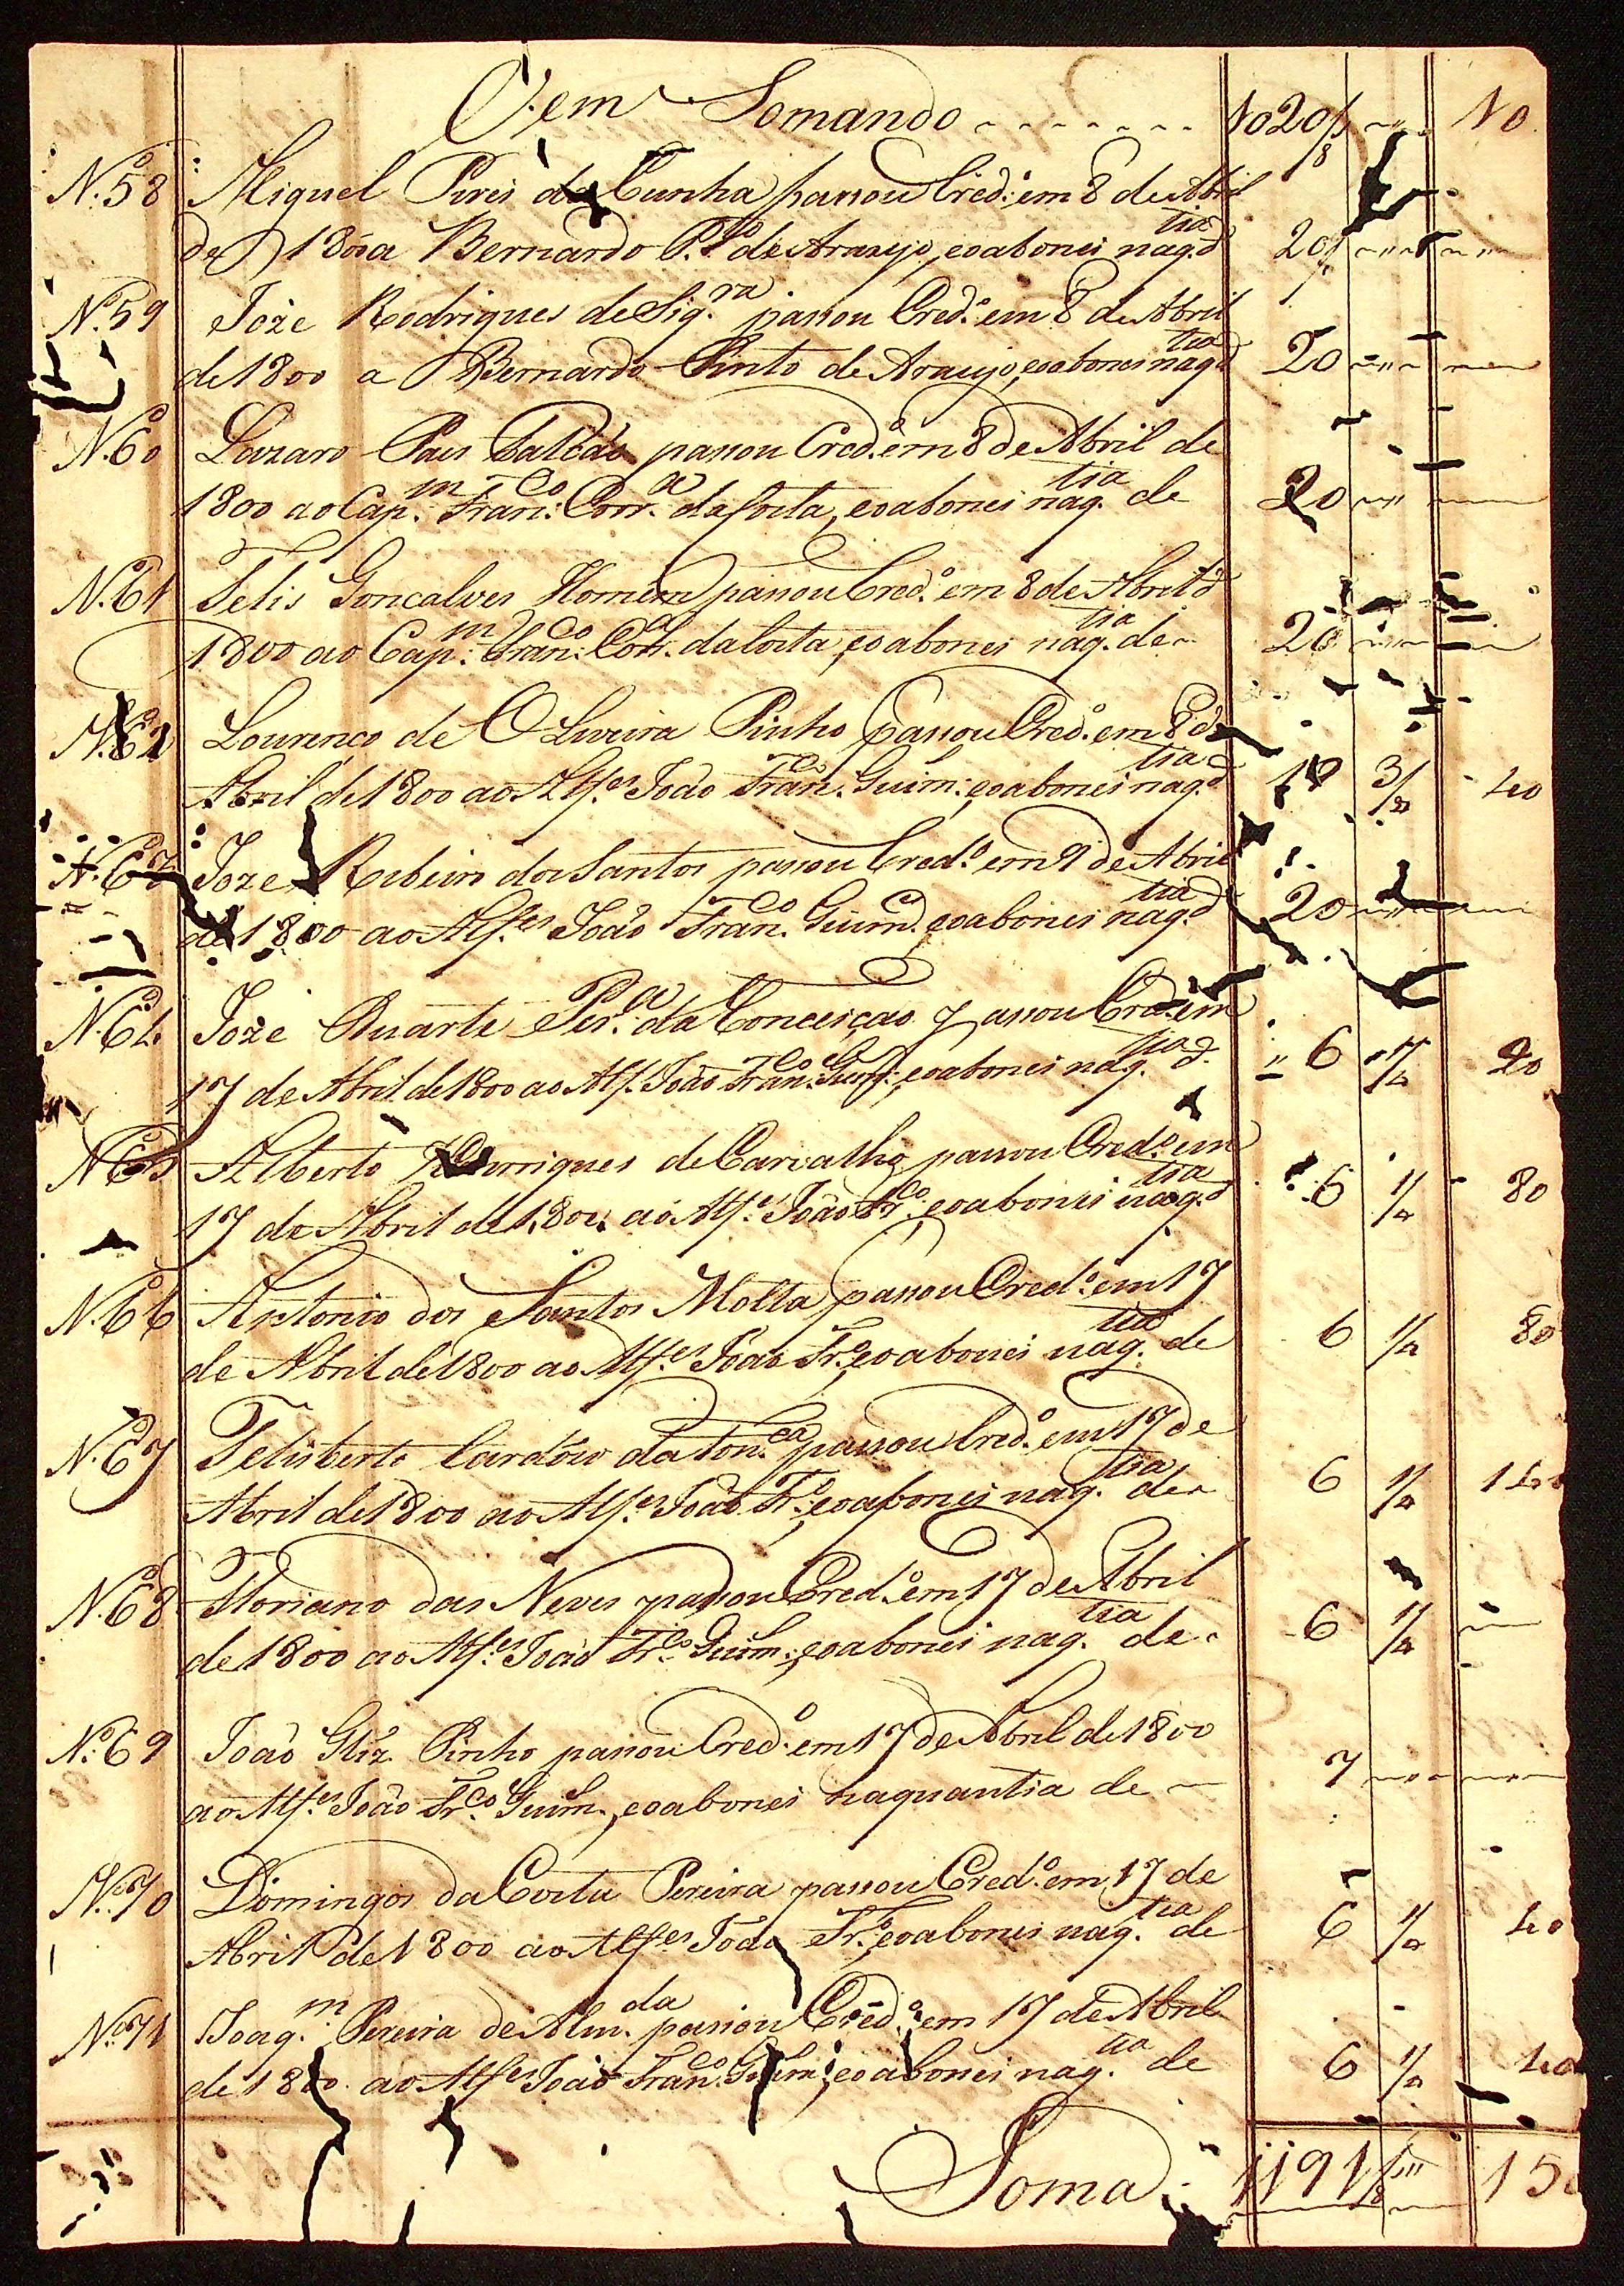 Vem Somando - - - - - - - 1020/8 - - 10
N.º 58 Miguel Pires da Cunha passou Cred.º em 8 de Abril
de 1800 a Bernardo P.to de Araujo, eoabonei naq.tia d 20/8
N.º 59 Joze Rodrigues de Siq.ra passou Cred.º em 8 de Abril
de 1800 a Bernardo Pinto de Araujo, eoabonei naq.tia d 20
N.º 60 Lazaro Paes Falcão passou Cred.º em 8 de Abril de
1800 ao Cap.m Fran.co Corr.a da Costa, eoabonei naq.tia de 20
N.º 61 Felis Goncalves Homem passou Cred.º em 8 de Abril d
1800 ao Cap.m Fran.co Corr.a da Costa, eoabonei naq.tia de 20
N.º 62 Lourenço de OLiveira Pinho passou Cred.º em 8 d
Abril de 1800 ao Alf.es João Fran.co Guim. eoabonei naq.tia d 3/8 40
N.º 63 Joze Ribeiro dos Santos passou Cred.º em 9 de Abril
de 1800 ao Alf.es João Fran.co Guim. eoabonei naq.tia d 20
N.º 64 Joze Duarte Per.a da Conceição passou Cred.º em
17 de Abril de 1800 ao Alf. João Fran.co Guim. eoabonei naq.tia d. 6 1/4 20
N.º 65 Alberto Henriques de Carvalho passou Cred.º em
17 de Abril de 1800 ao Alf.es João Fr.co eoabonei naq.tia d 6 1/4 80
N.º 66 Antonio dos Santos Motta passou Cred.º em 17
de Abril de 1800 ao Alf.es João Fr.co eoabonei naq.tia de 6 1/4 80
N.º 67 Felisberto Cardozo da Fon.ca passou Cred.º em 17 de
Abril de 1800 ao Alf.es João Fr.co eoabonei naq.tia de 6 1/4 140
N.º 68 Floriano das Neves passou Cred.º em 17 de Abril
de 1800 ao Alf.es João Fr.co Guim. eoabonei naq.tia de 6 1/4
N.º 69 João Glz Pinho passou Cred.º em 17 de Abril de 1800
ao Alf.es João Fr.co Guim., eoabonei naquantia de 7
N.º 70 Domingos da Costa Pereira passou Cred.º em 17 de
Abril de 1800 ao Alf.es João Fr.co eoabonei naq.tia de 6 1/4 40
N.º 71 Joaq.m Pereira de Alm.da passou Cred.º em 17 de Abril
de 1800 ao Alf.es João Fran.co Guim. eoabonei naq.tia de 6 1/4 40
Soma 1191/8 15